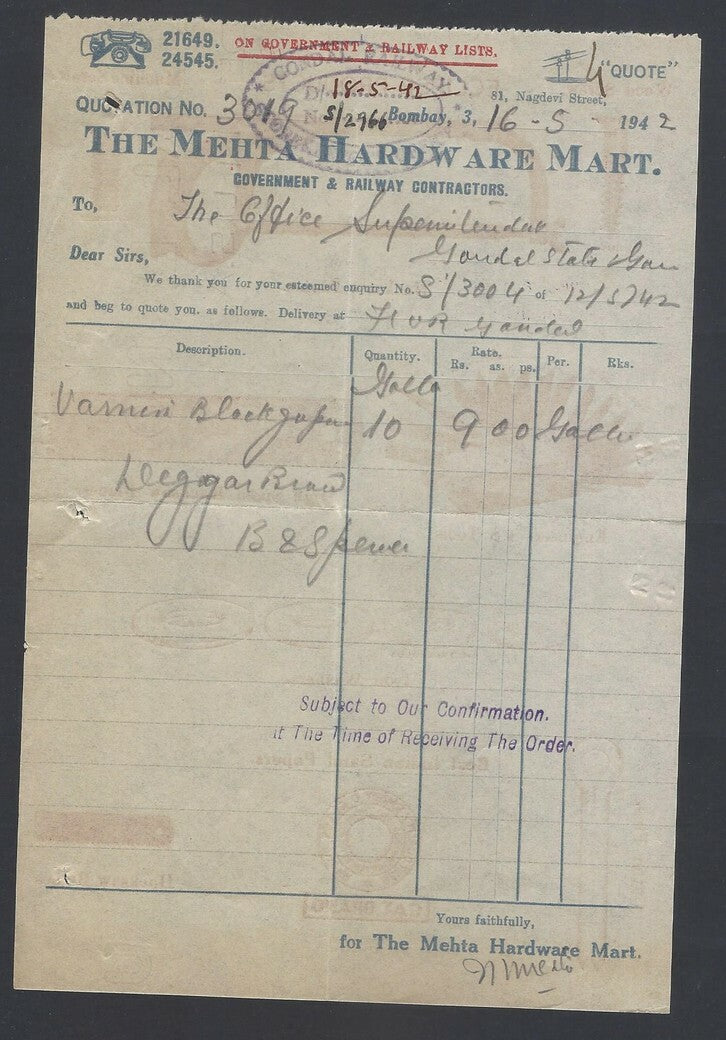 21649.
24545.
ON GOVERNMENT & RAILWAY LISTS.
"QUOTE"
GONDAL RAILWAY
18-5-42
S/2966
81, Nagdevi Street,
QUOTATION NO. 3019
Bombay, 3, 16-5 1942
THE MEHTA HARDWARE MART.
GOVERNMENT & RAILWAY CONTRACTORS.
To, The Office Superintendent
Gondal State
Dear Sirs,
We thank you for your esteemed enquiry No. S/3004 of 12/5/42
and beg to quote you. as follows. Delivery at F O R Gondal
Description. Quantity. Rate. Per. Rks.
Rs. as. ps.
Galls
Varnish Black Japan 10 9 0 0 Gallon
Subject to Our Confirmation.
At The Time of Receiving The Order.
Yours faithfully,
for The Mehta Hardware Mart.